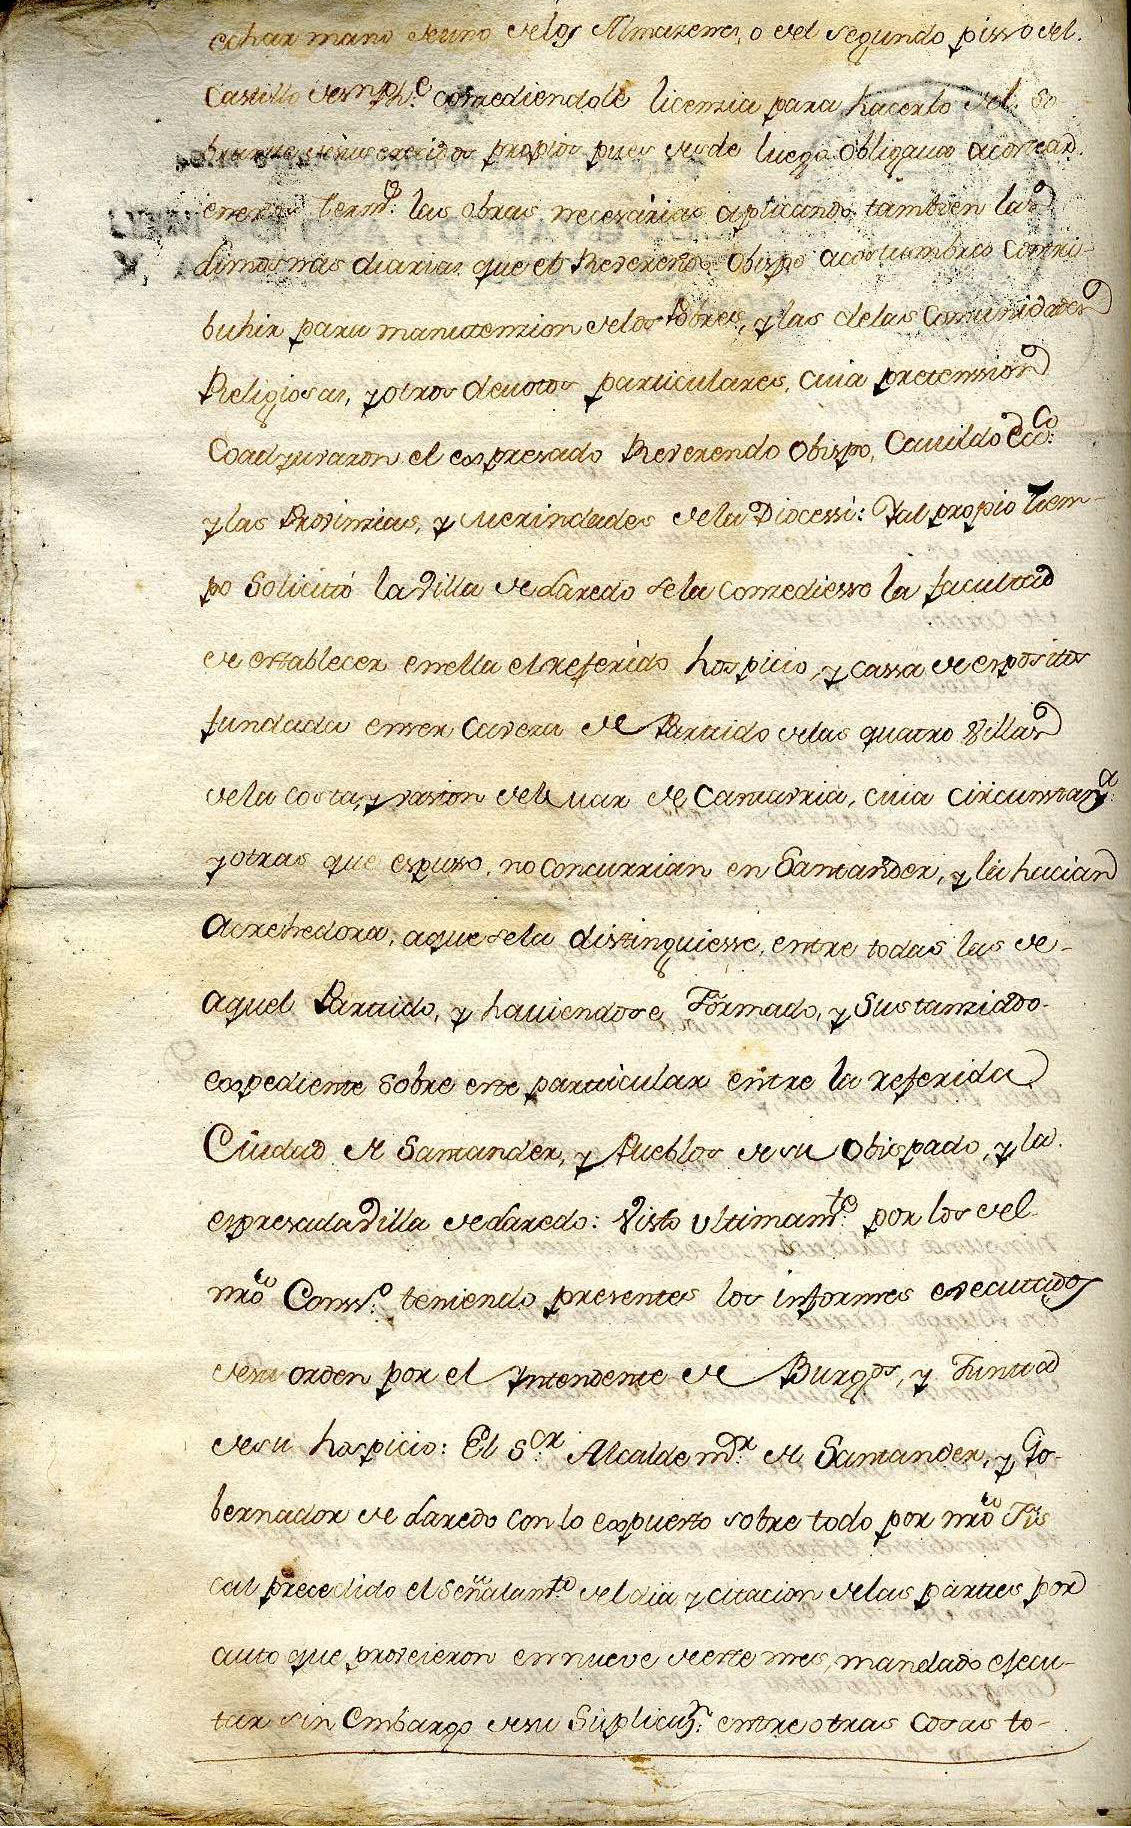 echar mano deuno delos Almazenes, o del segundo pisso del.
Castillo de Sn Phe. consediendole licensia para hacerlo del So
brante desus caudos propios pues desde luego obligava acostead
enerta term.o las obras necesarias aplicando tambien las
limosnas diarias que el Reverendo Obispo acostumbro contri-
buhir para manutension delos Pobres, y las delas Comunidades
Religiosas, y otros devotos particulares, cuia pretenssion
Coadyuvaron el expresado Reverendo Obispo, Cavildo Ecco.
y las Provinsias, y Merindades dela Diocessi: Yal propio tiem-
po Solicitó la Villa de Laredo sela consediesse la facultad
de establecer enella el referido hospicio, y cassa de expositos
fundada enser Cavera de Partido delas quatro Villas
dela costa, y baston del Mar de Cantavria, cuia circunstanza.
y otras que expusso, no concurrian en Santander, y la hacian
Acrehedora, aque sela distinguiesse, entre todas las de-
aquel Partido, y haviendose Formado, y Sustansiado-
expediente sobre este particular entre la referida
Ciudad de Santander, y Pueblos de su Obispado, y la
expresada Villa de Laredo: Visto ultimamte. por los del
nro Conso. teniendo presentes los informes executados
desu orden por el Yntendente de Burgos, y Junta
desu hospicio: El Sor. Alcalde mr. de Santander, y Go-
bernador de Laredo con lo expuesto sobre todo por nro Fis
cal precedido el Señalamto. del dia y citacion delas partes por
auto que proveieron en nueve deeste mes, mandado ejecu-
tar sin Embargo desu Suplicazn. entre otras cosas to-